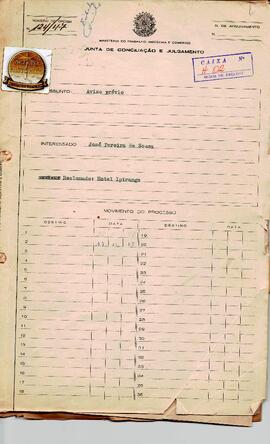 NÚMERO DO PROCESSO
N. DE ARQUIVAMENTO
124/47
N.
MINISTÉRIO DO TRABALHO, INDÚSTRIA E COMÉRCIO
JUNTA DE CONCILIAÇÃO E JULGAMENTO
CAIXA Nº
ASSUNTO Aviso prévio
INTERESSADO José Pereira de Sousa
Reclamado: Hotel Ipiranga
MOVIMENTO DO PROCESSO
DESTINO DATA DESTINO DATA
1 19
2 20
3 21
4 22
5 23
6 24
7 25
8 26
9 27
10 28
11 29
12 30
13 31
14 32
15 33
16 34
17 35
18 36